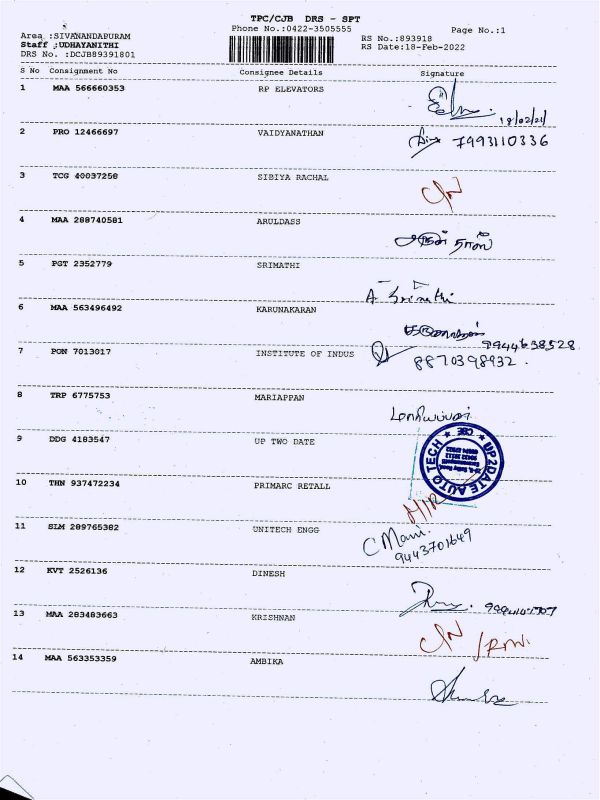 TPC/CJB DRS - SPT
Phone No.:0422-3505555 Page No.:1
Area :SIVANANDAPURAM
RS No.:893918
Staff :UDHAYANITHI
RS Date:18-Feb-2022
DRS No. :DCJB89391801
S No Consignment No Consignee Details Signature
1 MAA 566660353 RP ELEVATORS
18/02/21
2 PRO 12466697 VAIDYANATHAN
7993110336
3 TCG 40037258 SIBIYA RACHAL
C/N
4 MAA 288740581 ARULDASS
5 PGT 2352779 SRIMATHI
A. Srimathi
6 MAA 563496492 KARUNAKARAN
9944638528
7 PON 7013017 INSTITUTE OF INDUS
8870398932.
8 TRP 6775753 MARIAPPAN
மாரியப்பன்
9 DDG 4183547 UP TWO DATE
UP2DATE AUTO TECH
CBE
10 THN 937472234 PRIMARC RETALL
N/R
11 SLM 289765382 UNITECH ENGG
C Mani.
9443701649
12 KVT 2526136 DINESH
13 MAA 283483663 KRISHNAN
C/N
14 MAA 563353359 AMBIKA